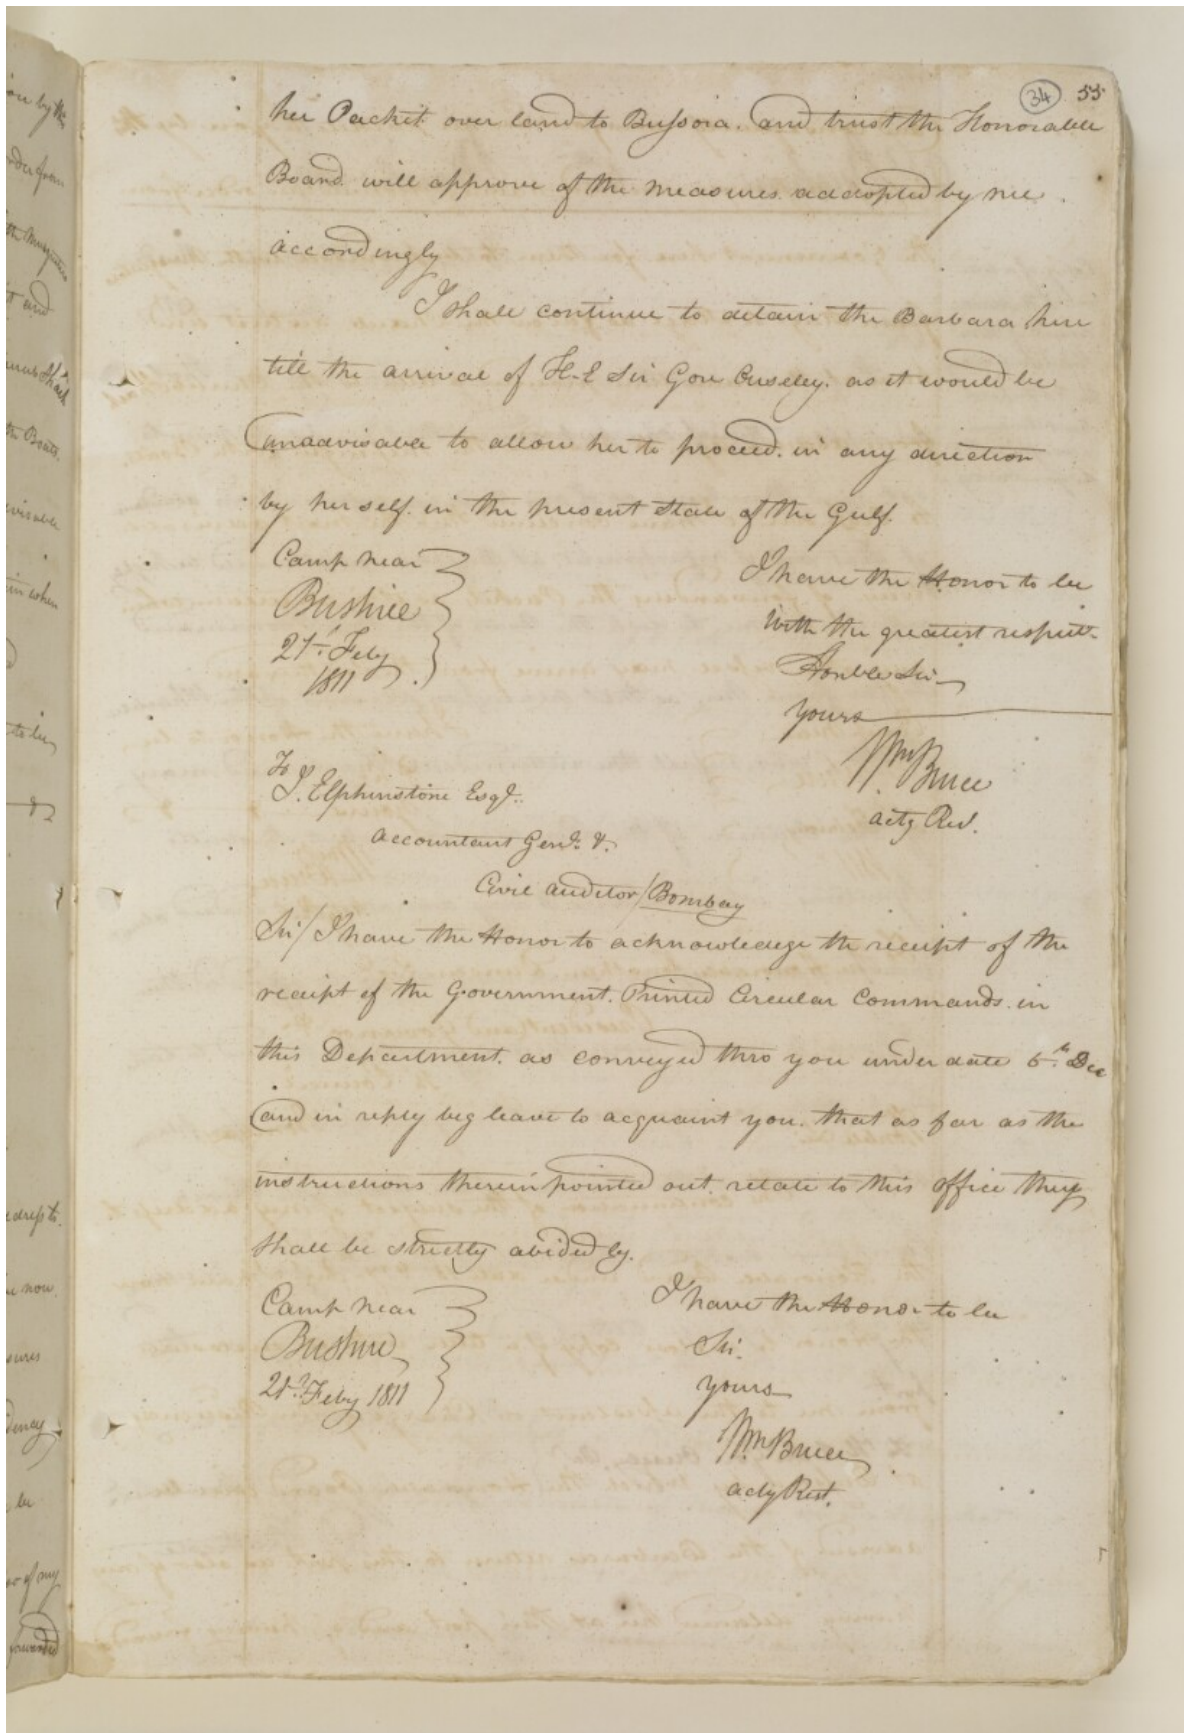 34 55
her Packet over land to Bussora. and trust the Honorable
Board will approve of the measures addopted by me
accordingly
I shall continue to detain the Barbara here
till the arrival of H.E Sir Gore Ouseley. as it would be
unadvisable to allow her to proceed. in any direction
by herself. in the present state of the Gulf.
Camp near
Bushire
21st Feby
1811
I have the Honor to be
With the greatest respect
Honble Sir
yours
Wm Bruce
actg Res.
To
J. Elphinstone Esqr.
Accountant Genl. &
Civil auditor / Bombay
Sir / I have the Honor to acknowledge the receipt of the
receipt of the Government. Printed Circular Commands. in
this Department. as conveyed thro you under date 6th Dec
and in reply beg leave to acquaint you. that as far as the
instructions therein pointed out. relate to this office they
shall be strictly abided by.
Camp near
Bushire
21st Feby 1811
I have the Honor to be
Sir.
yours
Wm Bruce
actg Rest.